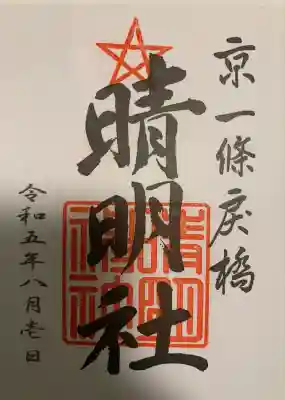 京一條戻橋
晴明社
晴明神社
令和五年八月壱日